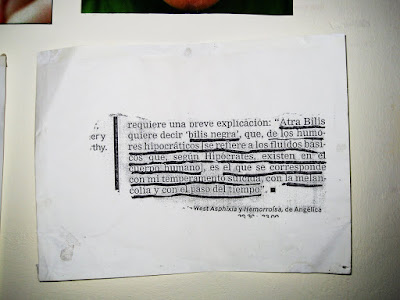 requiere una breve explicación: “Atra Bilis
quiere decir ‘bilis negra’, que, de los humo-
er y
res hipocráticos se refiere a los fluidos bási-
rthy.
cos que, según Hipócrates, existen en el
cuerpo humano, es el que se corresponde
con mi temperamento suicida, con la melan-
colía y con el paso del tiempo”. ■
West Asphixia y Hemorroísa, de Angélica
20.30 - 23.00